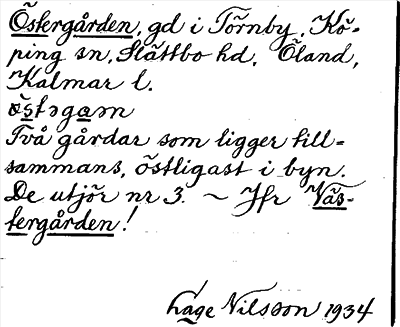 Östergården, gd i Törnby, Kö-
ping sn, Slättbo hd, Öland,
Kalmar l.
östəgaɳ
Två gårdar som ligger till-
sammans, östligast i byn.
De utjör nr 3. ~ Jfr Väs-
tergården!
Hage Nilsson 1934